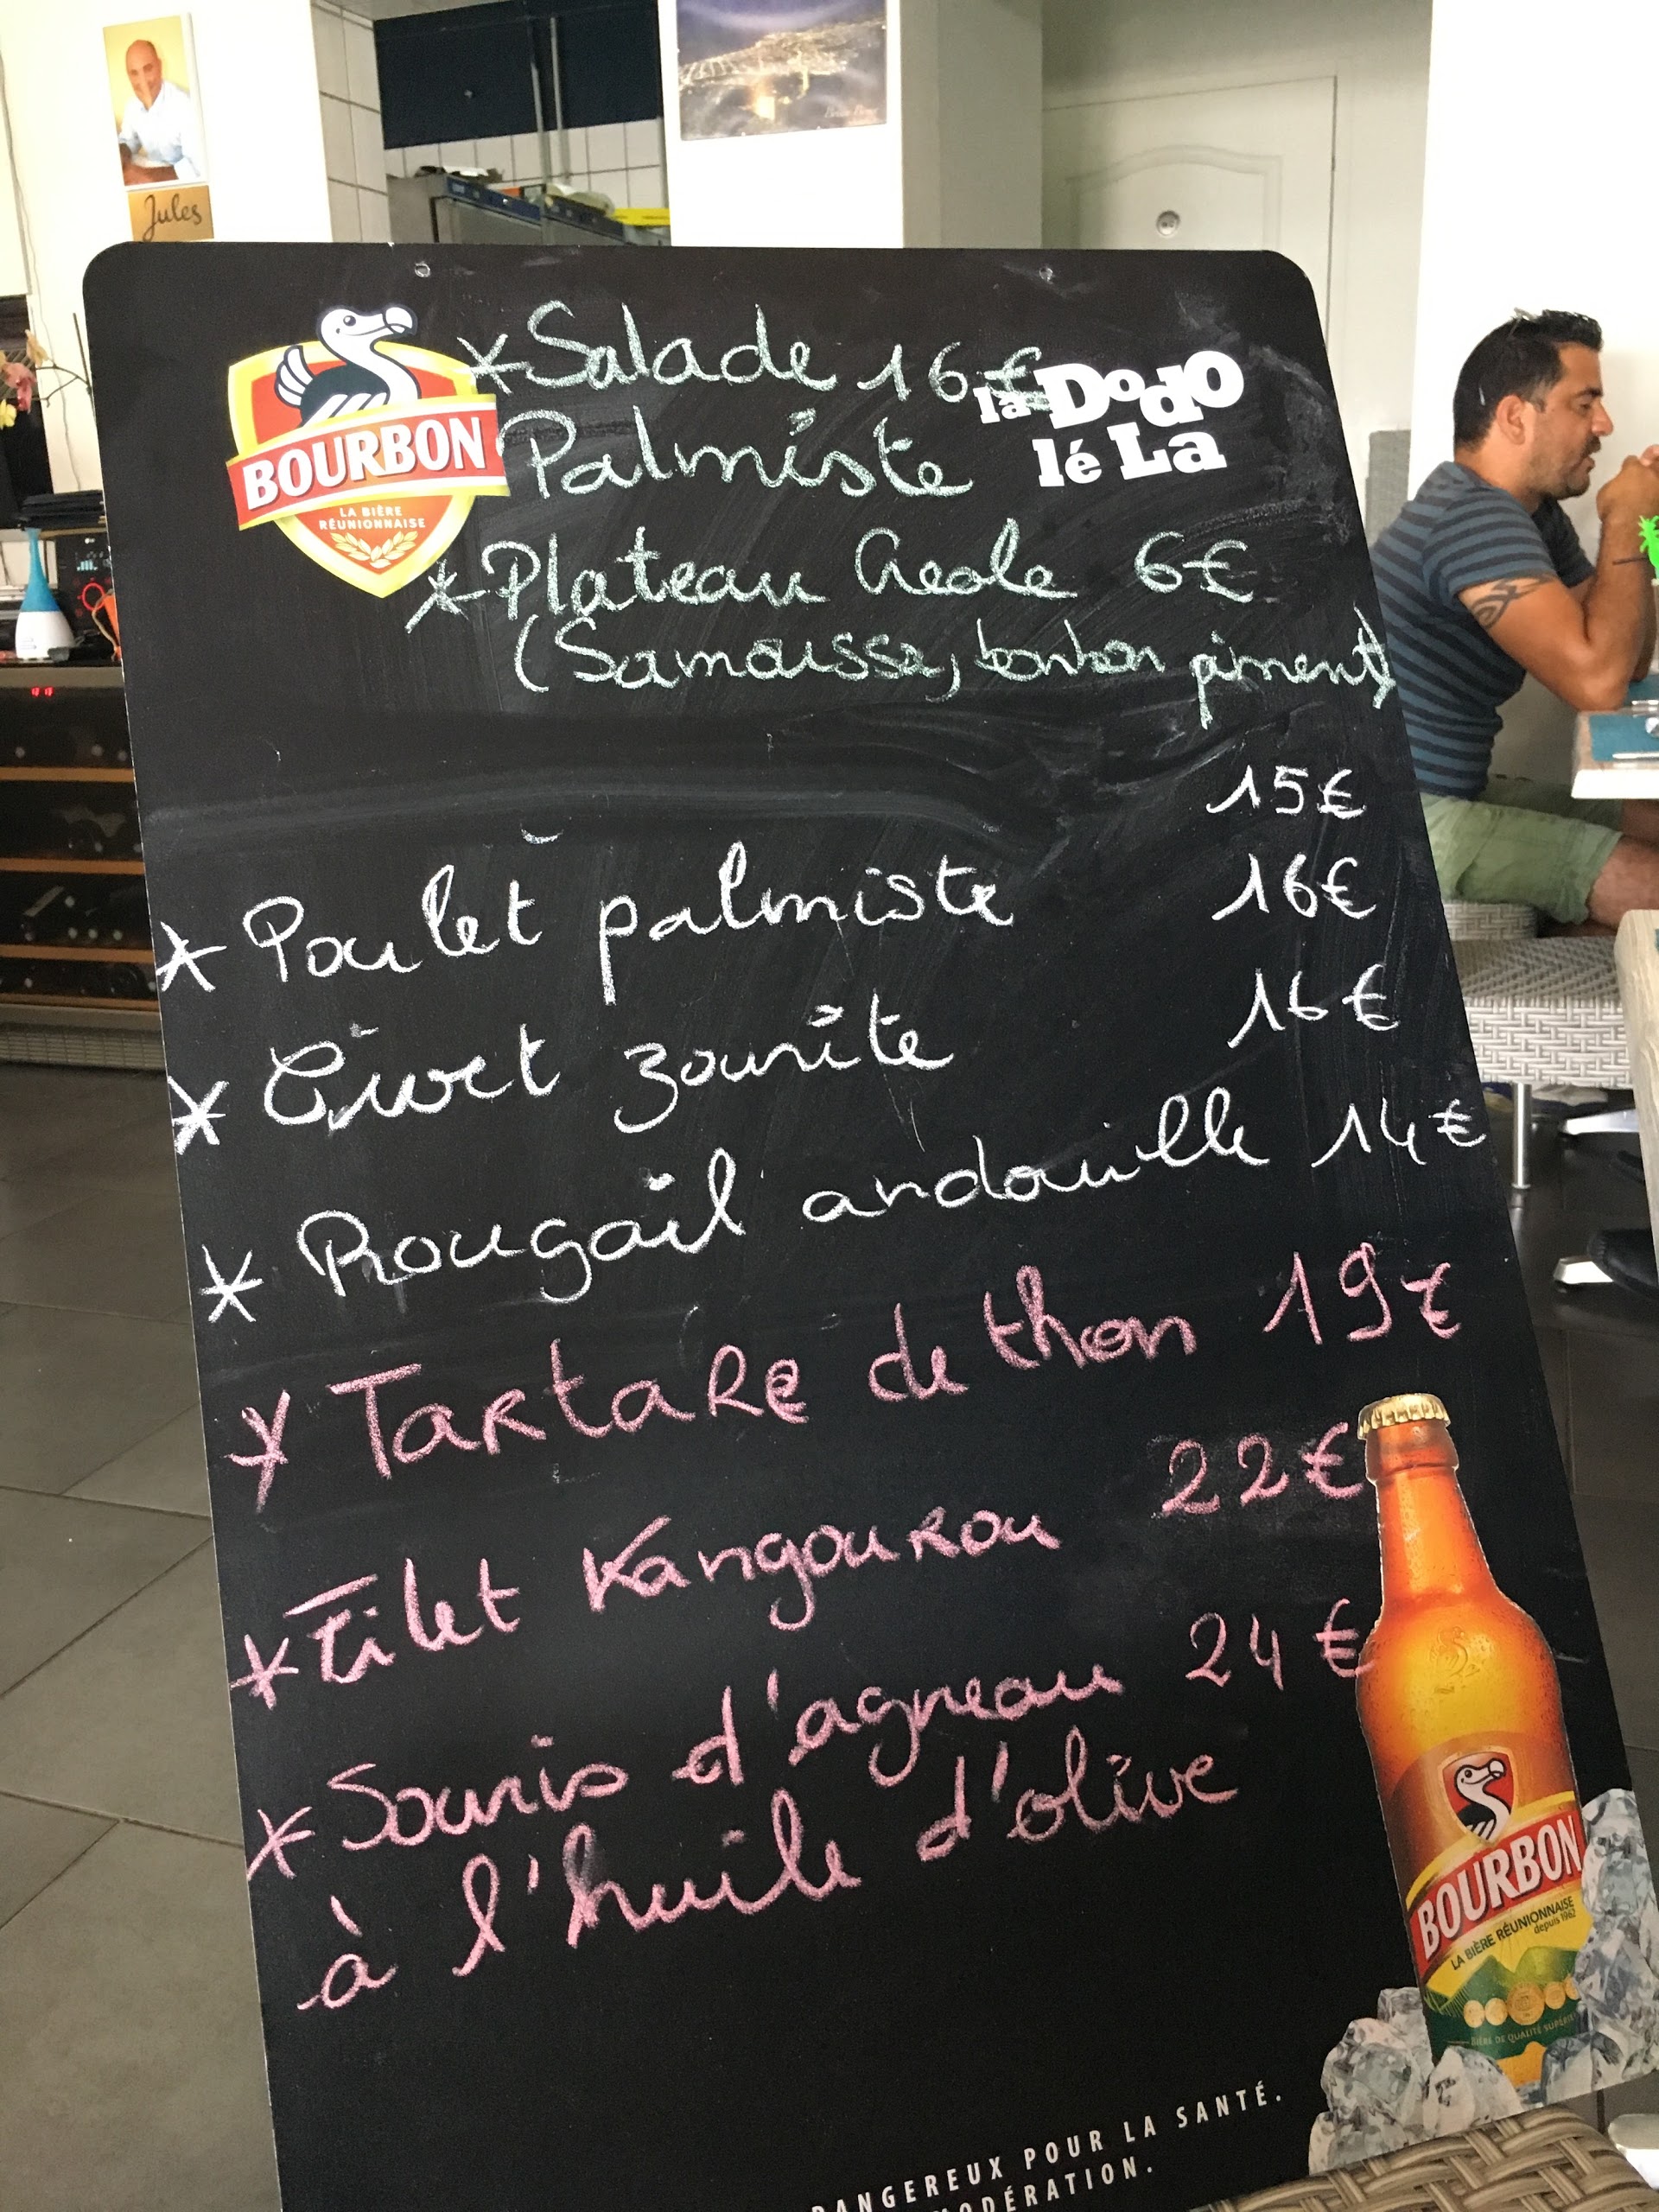 Jules
*Salade 16€
Palmiste
la Dodo
lé La
BOURBON
LA BIÈRE
RÉUNIONNAISE
*Plateau Creole 6€
(Samoussa, bonbon piment)
15€
* Poulet palmiste 16€
* Civet zourite 16€
* Rougail andouille 14€
* Tartare de thon 19€
* Filet Kangourou 22€
* Souris d'agneau 24€
à l'huile d'olive
BOURBON
LA BIÈRE RÉUNIONNAISE
depuis 1962
BIÈRE DE QUALITÉ
DANGEREUX POUR LA SANTÉ.
MODÉRATION.